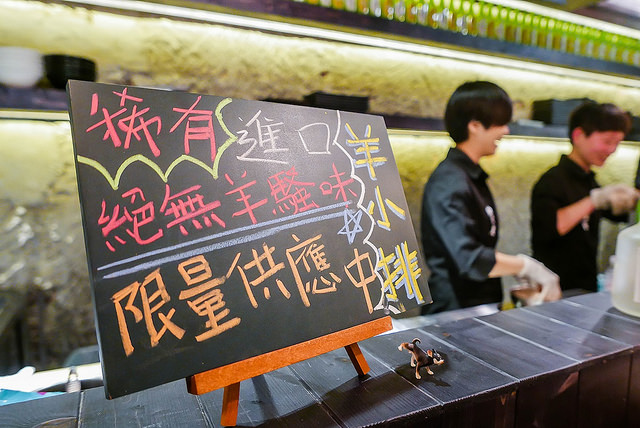 稀有進口
羊小排
絕無羊騷味
限量供應中